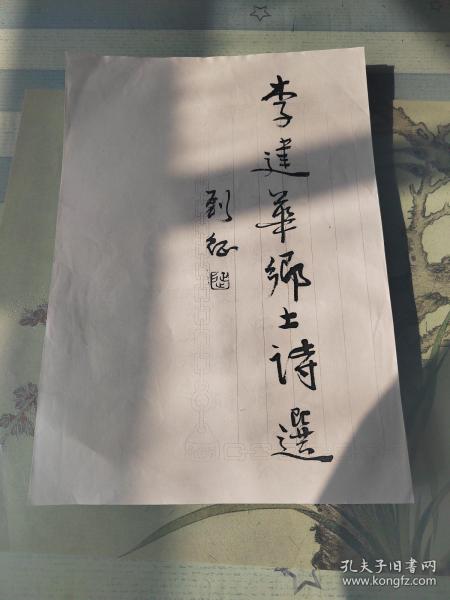 李建華鄉土詩選
劉征
孔夫子旧书网
www.kongfz.com